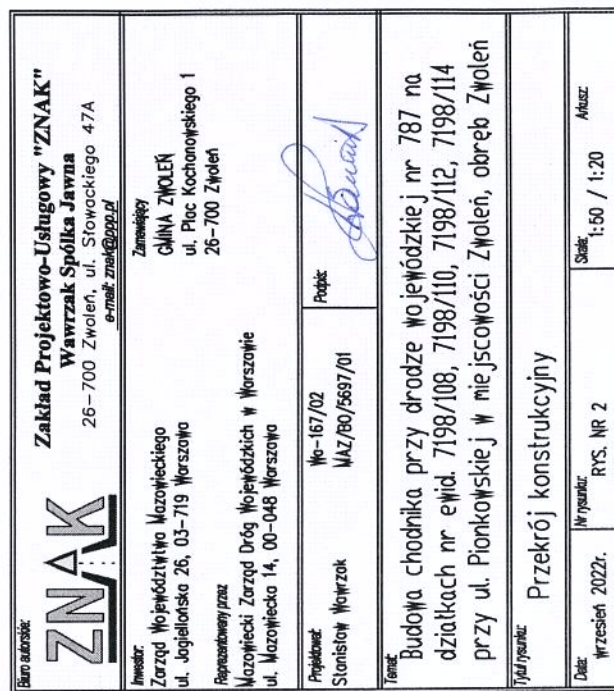 Biuro autorskie:
ZNAK
Zakład Projektowo-Usługowy "ZNAK"
Wawrzak Spółka Jawna
26-700 Zwoleń, ul. Słowackiego 47A
e-mail: znak@ppp.pl
Inwestor:
Zarząd Województwa Mazowieckiego
ul. Jagiellońska 26, 03-719 Warszawa
Reprezentowany przez
Mazowiecki Zarząd Dróg Wojewódzkich w Warszawie
ul. Mazowiecka 14, 00-048 Warszawa
Zamawiający
GMINA ZWOLEŃ
ul. Plac Kochanowskiego 1
26-700 Zwoleń
Projektował:
Stanisław Wawrzak
Wa-167/02
MAZ/BO/5697/01
Podpis:
Temat:
Budowa chodnika przy drodze wojewódzkiej nr 787 na
działkach nr ewid. 7198/108, 7198/110, 7198/112, 7198/114
przy ul. Pionkowskiej w miejscowości Zwoleń, obręb Zwoleń
Tytuł rysunku:
Przekrój konstrukcyjny
Data:
wrzesień 2022r.
Nr rysunku:
RYS. NR 2
Skala:
1:50 / 1:20
Arkusz: